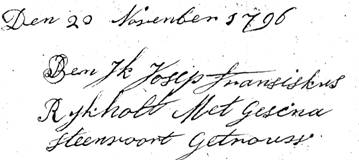 Den 20 November 1796
Ben Jk Josep fransiskus
Rykholt Met Gesina
Steenvoort Getrouws